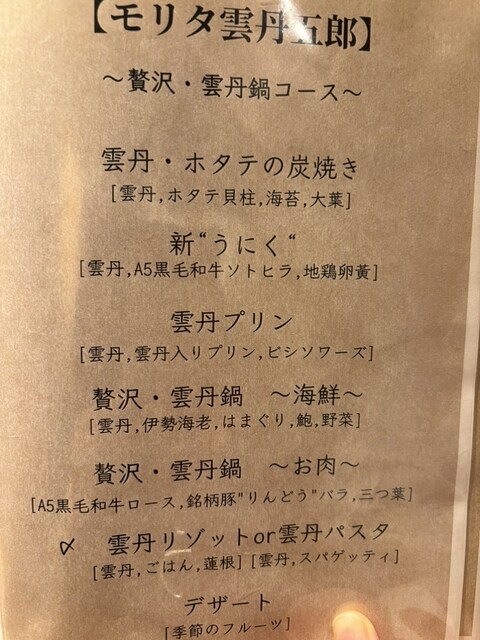 【モリタ雲丹五郎】
～贅沢・雲丹鍋コース～
雲丹・ホタテの炭焼き
[雲丹,ホタテ貝柱,海苔,大葉]
新“うにく“
[雲丹,A5黒毛和牛ソトヒラ,地鶏卵黄]
雲丹プリン
[雲丹,雲丹入りプリン,ビシソワーズ]
贅沢・雲丹鍋　～海鮮～
[雲丹,伊勢海老,はまぐり,鮑,野菜]
贅沢・雲丹鍋　～お肉～
[A5黒毛和牛ロース,銘柄豚"りんどう"バラ,三つ葉]
〆　雲丹リゾットor雲丹パスタ
[雲丹,ごはん,蓮根] [雲丹,スパゲッティ]
デザート
[季節のフルーツ]